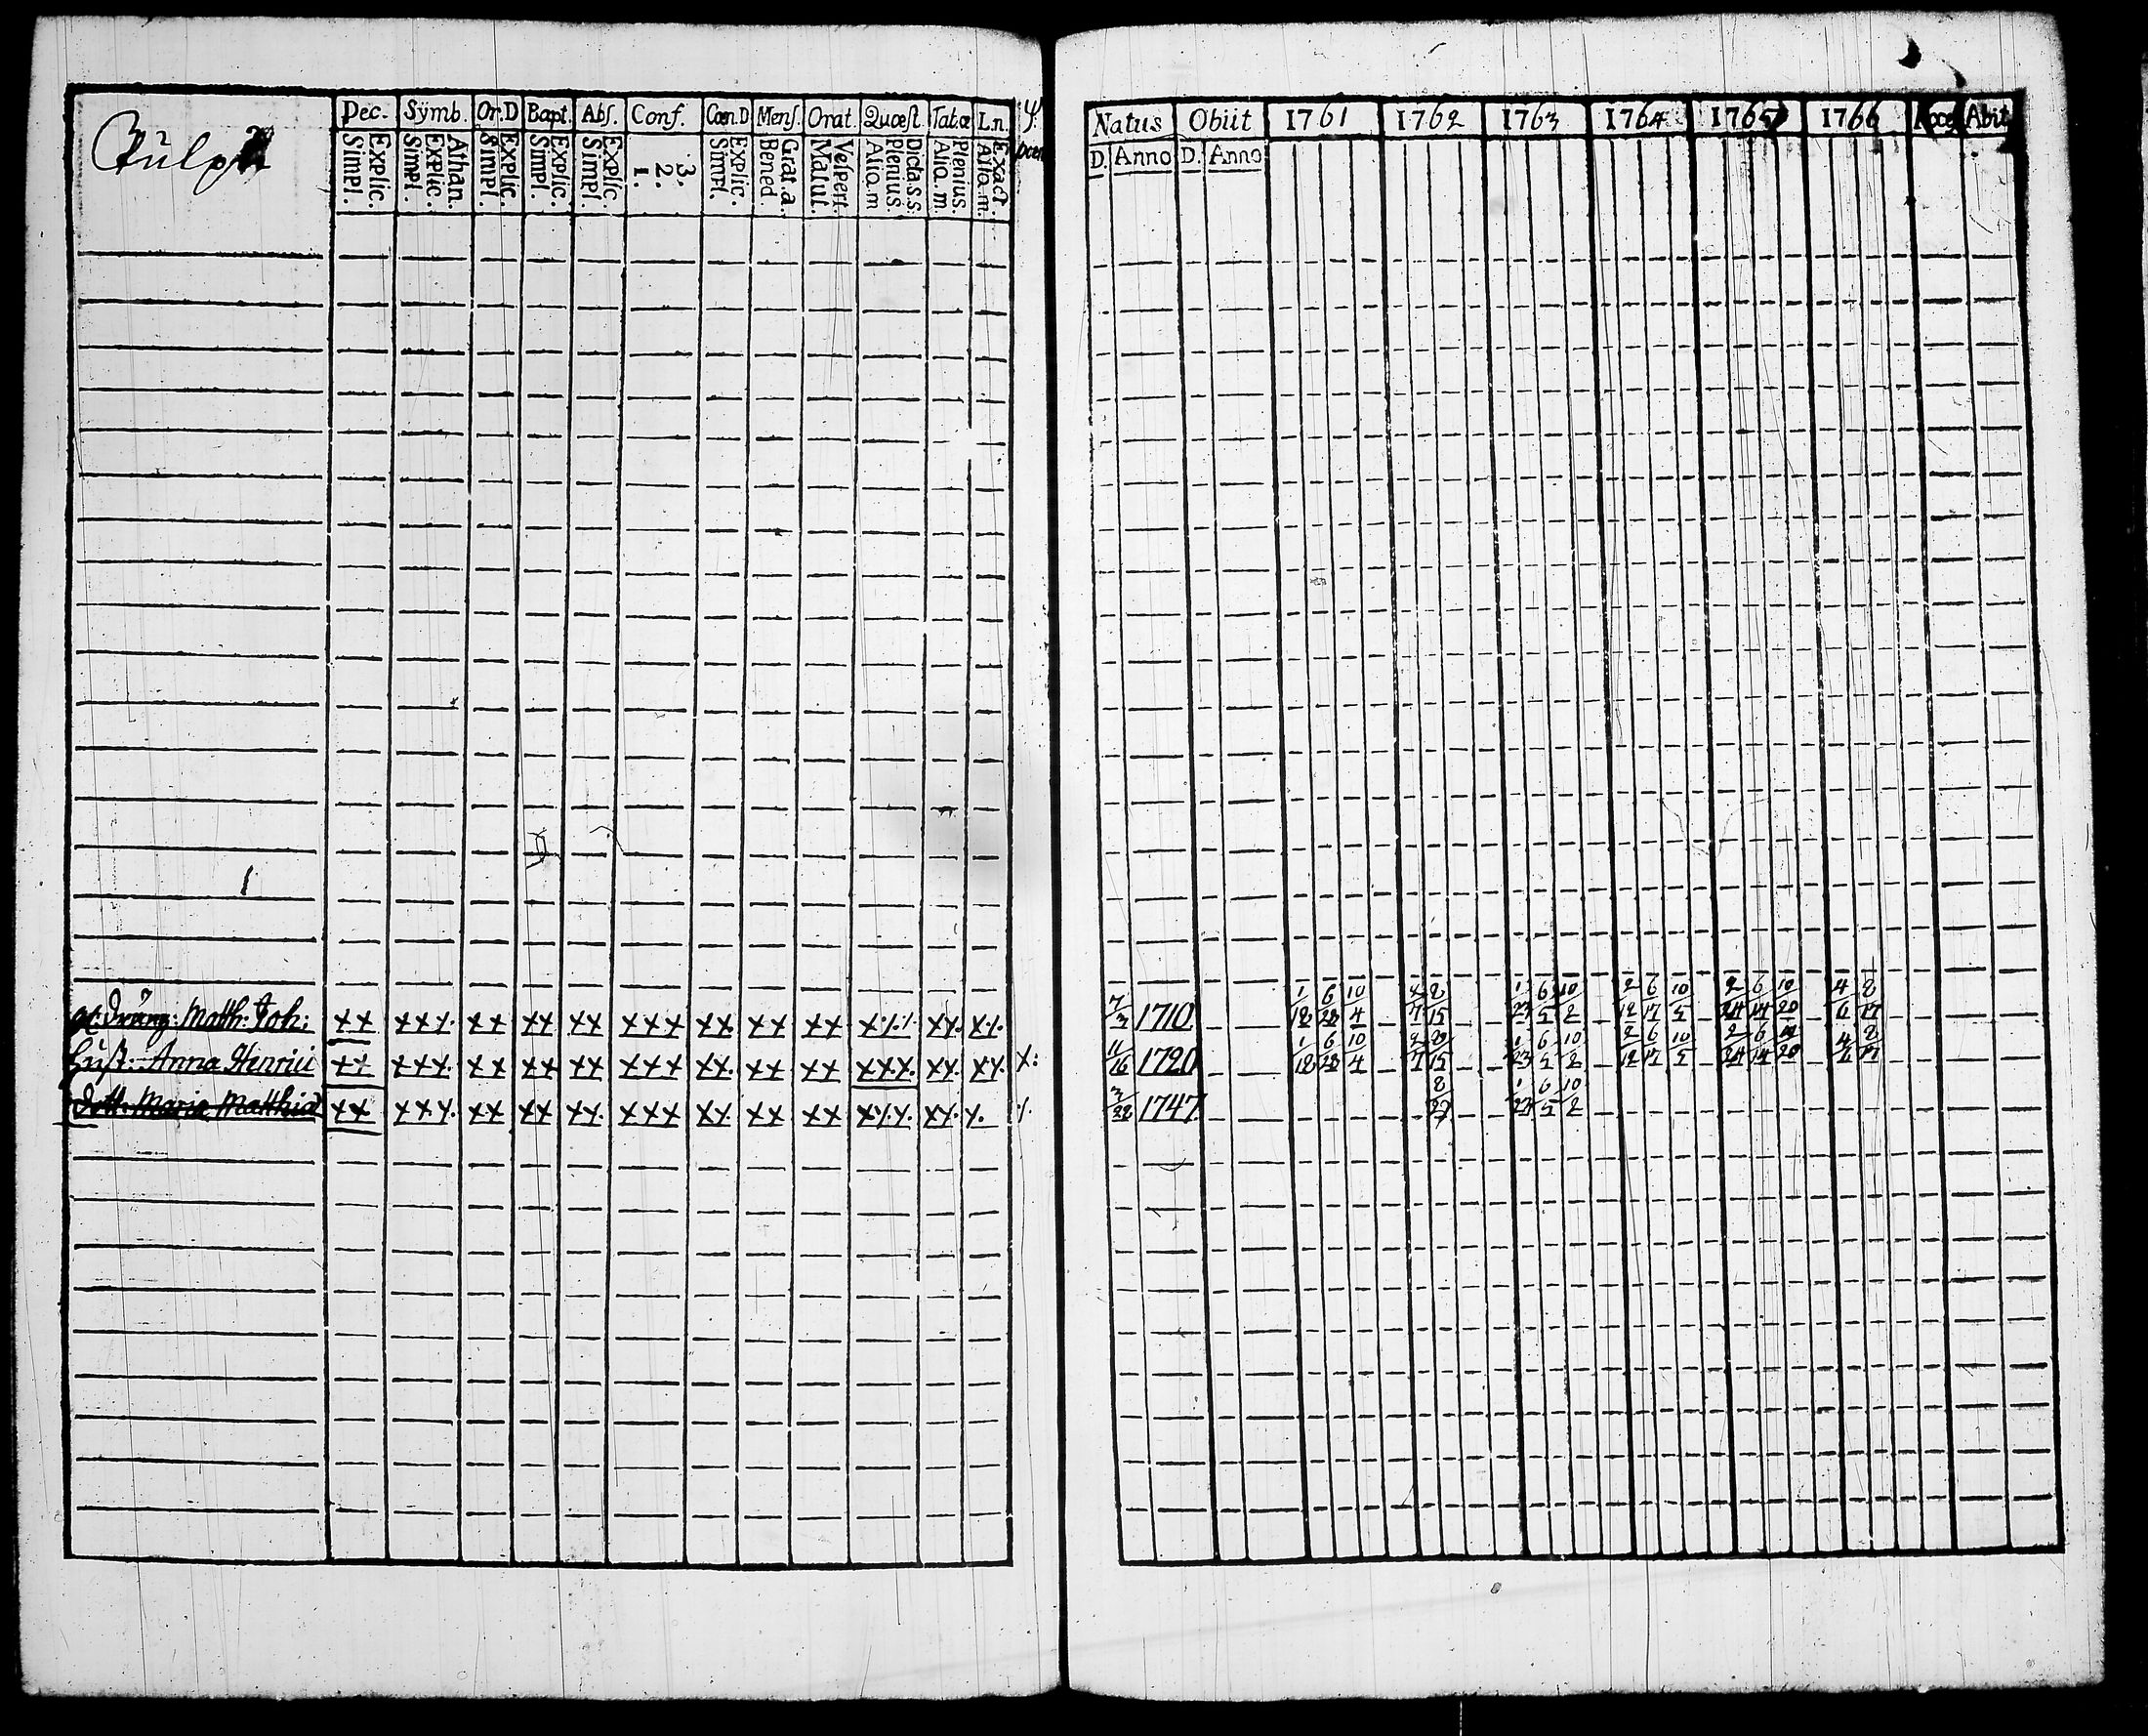 Dec. Symb. Or.D Bapt. Abs. Conf. Cœn.D Mens. Orat. Quæst. Tab.œ L.n.
Explic. Simpl. Athan. Explic. Simpl. Explic. Simpl. Explic. Simpl. Explic. Simpl. 3. 2. 1. Explic. Simpl. Grat.a. Bened. Vespert. Matut. Dicta.s.s. Plenius. Aliq.m Plenius. Aliq.m. Exact. Aliq.m.
Matth: Joh: xx xxx xx xx xx xxx xx xx xx x:/:/ xx xx
Hust: Anna Henrici xx xxx xx xx xx xxx xx xx xx xxx xx xx x:
dott: Maria Matthiæ xx xxx xx xx xx xxx xx xx xx xxx xx x.
Natus Obiit 1761 1762 1763 1764 1765 1766 Acces Abit
D. Anno D. Anno
7/3 1710 1/18 6/28 10/4 4/7 8/15 1/23 6/5 10/2 2/12 6/17 10/5 2/24 6/14 10/20 4/6 8/17
11/16 1720 1/18 6/28 10/4 1/23 6/5 10/2 2/12 6/17 10/5 2/24 6/14 10/20 4/6 8/17
3/22 1747 8/27 1/23 6/5 10/2